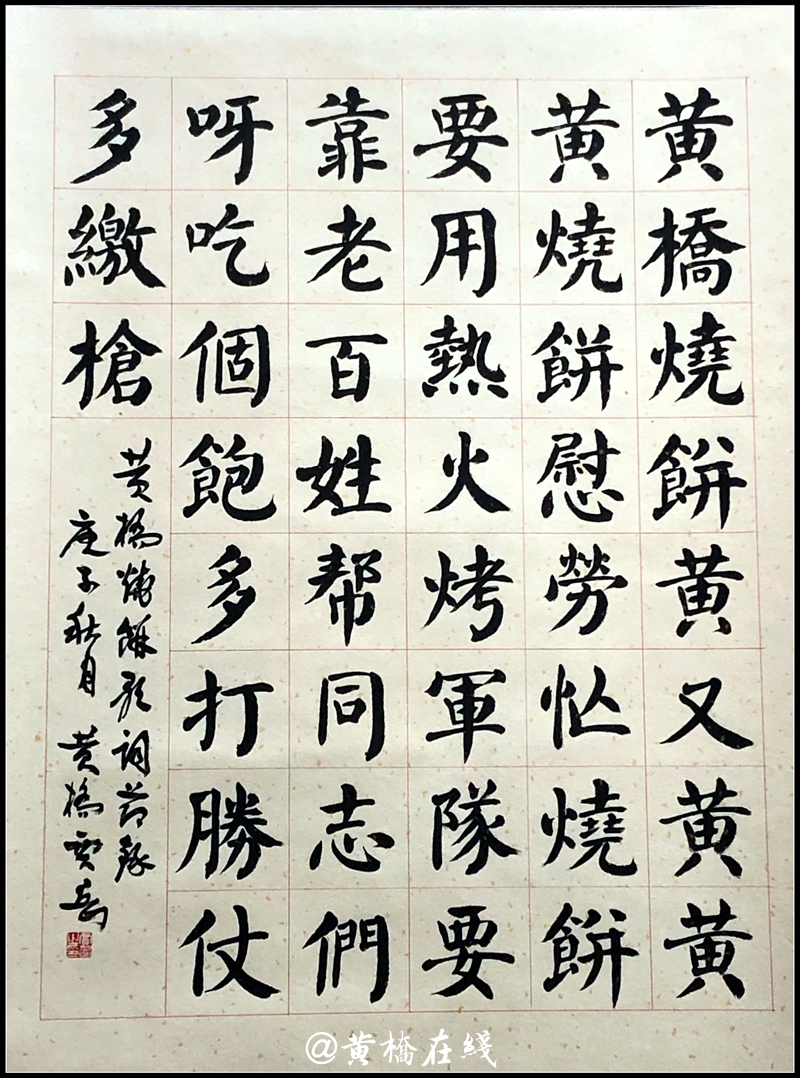 黄橋燒餅黄又黄黄
黄燒餅慰勞忙燒餅
要用熱火烤軍隊要
靠老百姓帮同志們
呀吃個飽多打勝仗
多繳槍
黄橋燒餅歌詞節録
庚子秋月 黄橋
@黄橋在綫